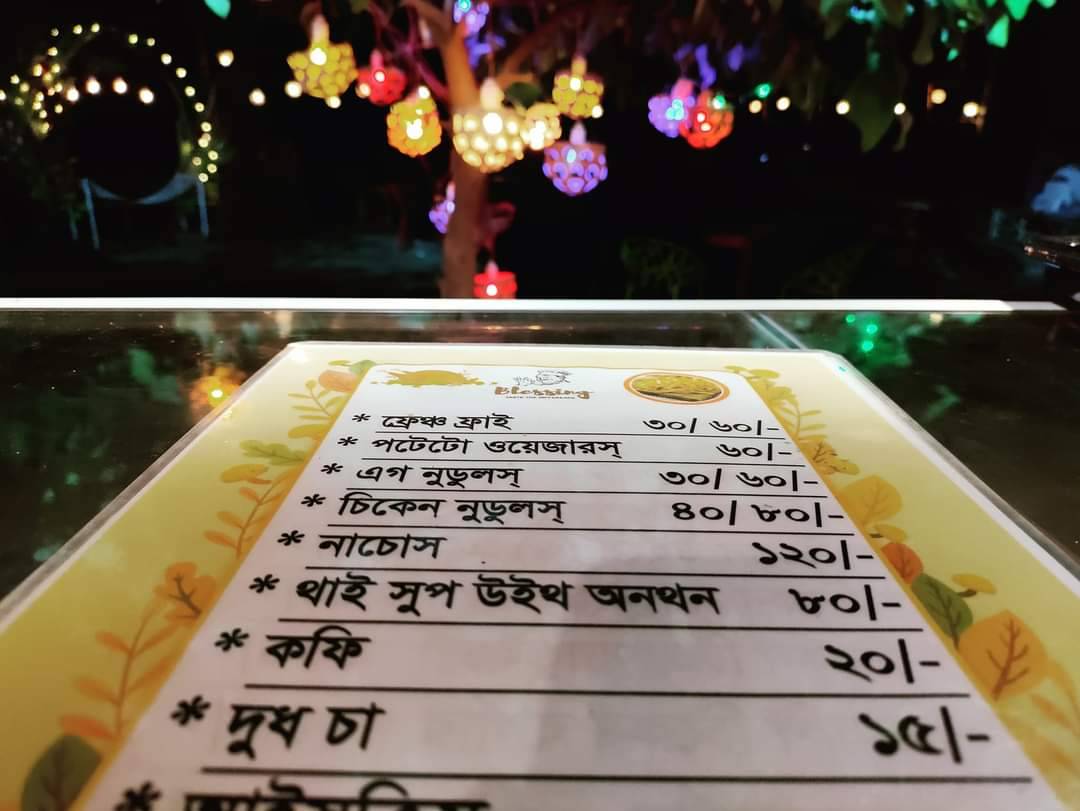 Blessing
* ফ্রেঞ্চ ফ্রাই ৩০/ ৬০/-
* পটেটো ওয়েজারস্ ৬০/-
* এগ নুডুলস্ ৩০/ ৬০/-
* চিকেন নুডুলস্ ৪০/ ৮০/-
* নাচোস ১২০/-
* থাই সুপ উইথ অনথন ৮০/-
* কফি ২০/-
* দুধ চা ১৫/-